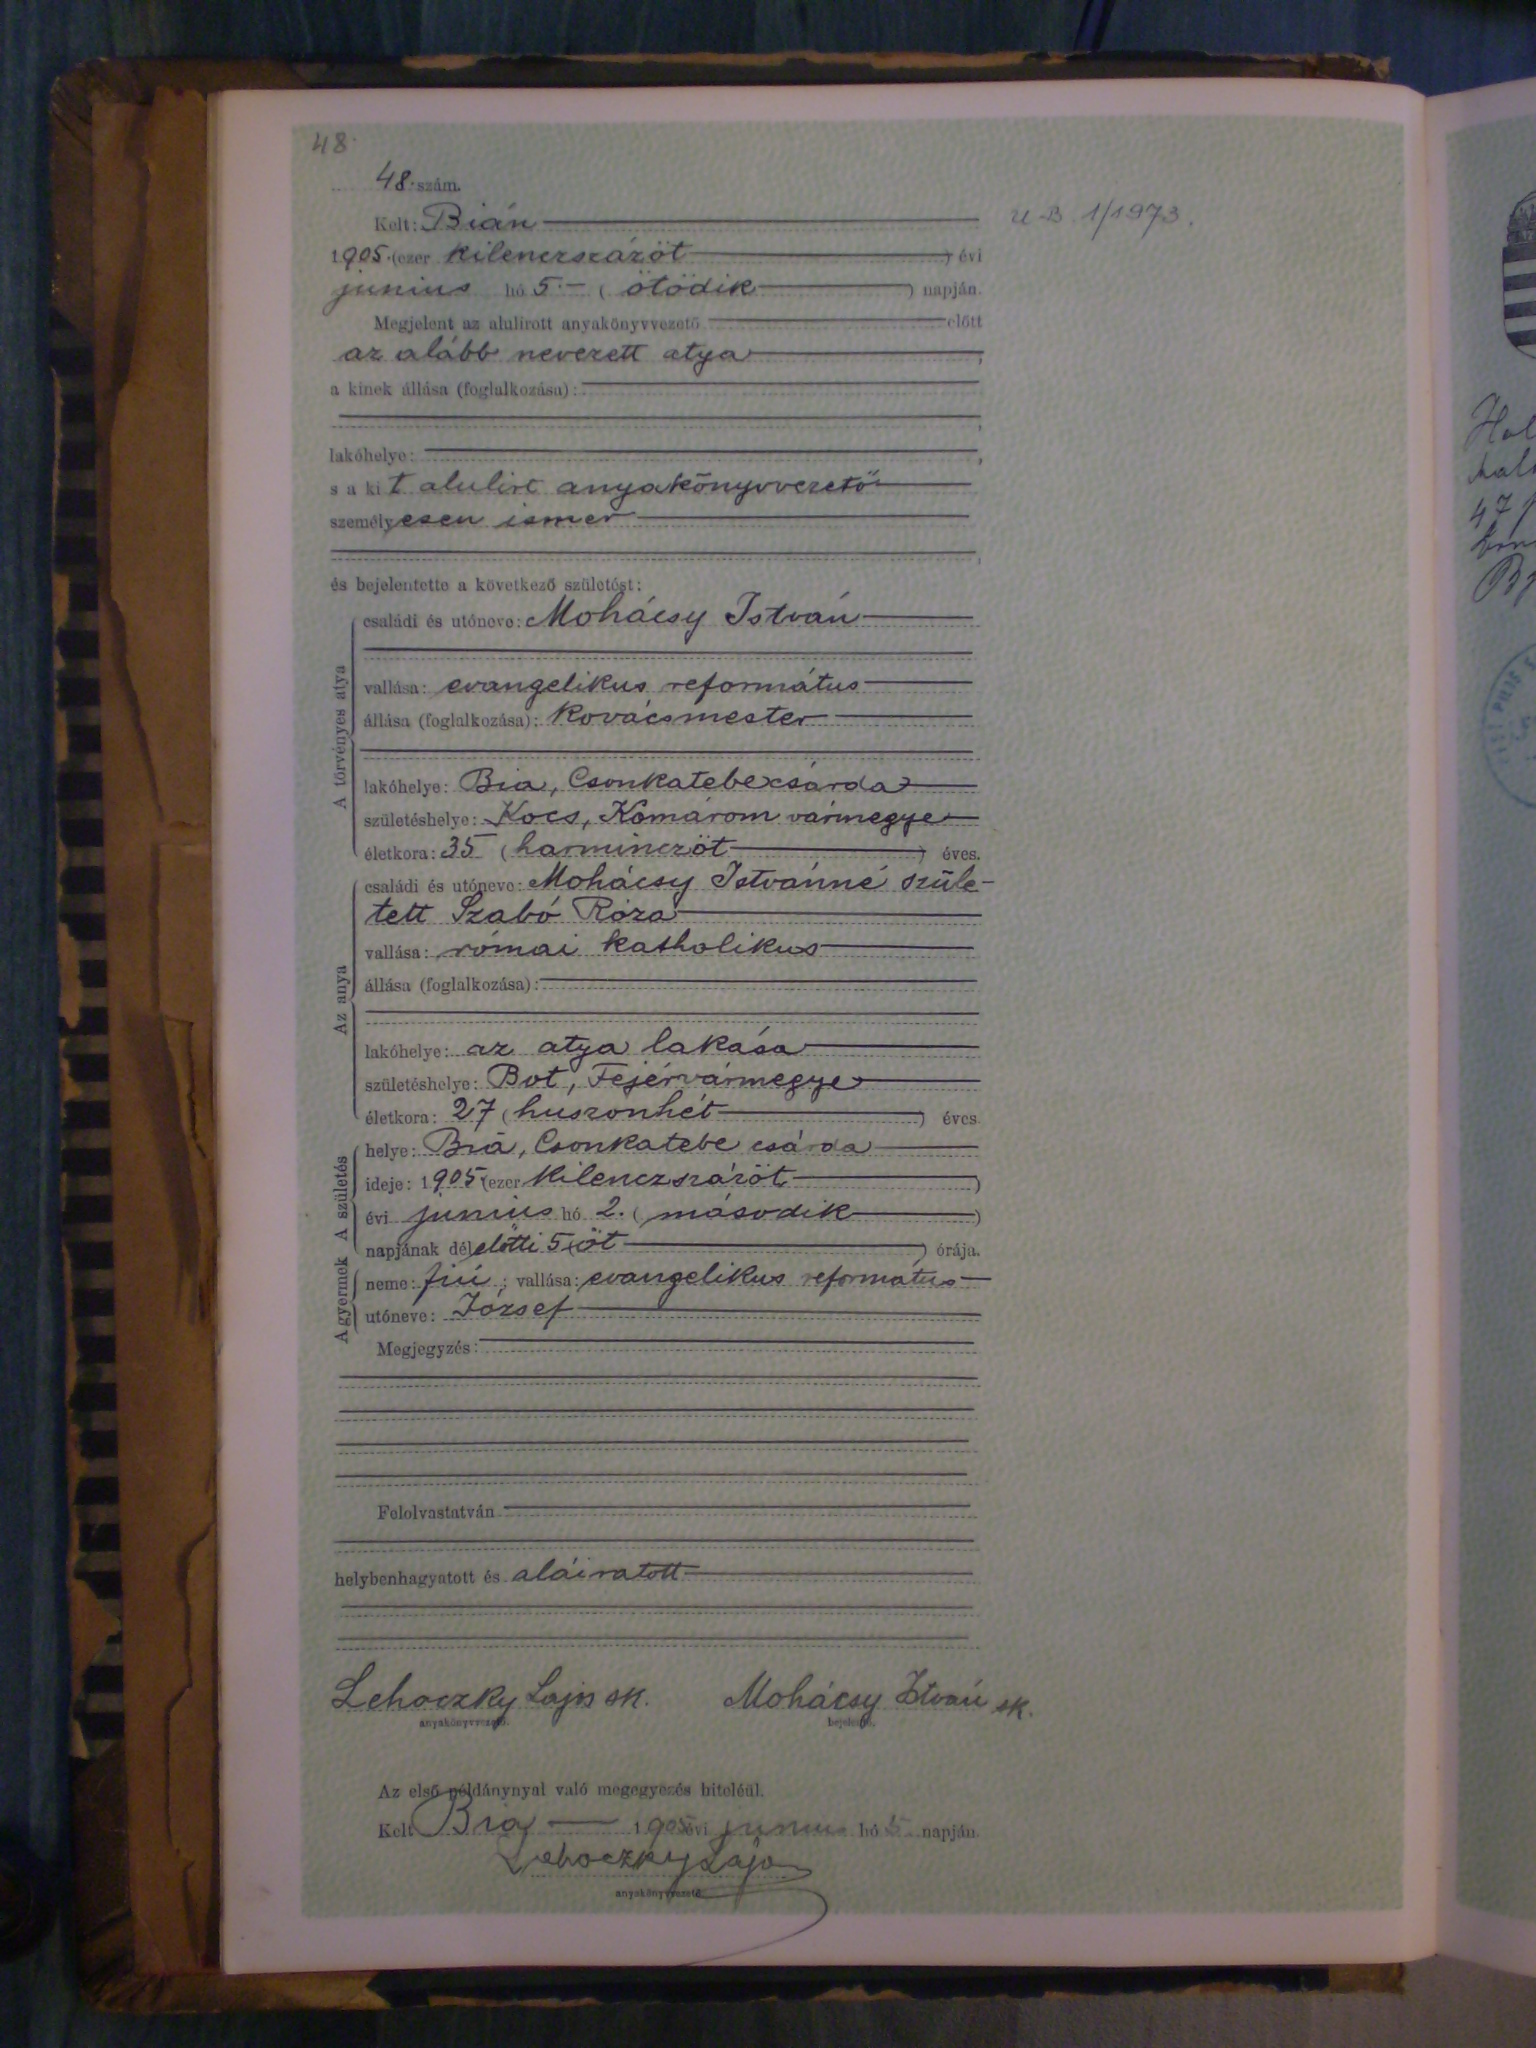 48.
48. szám.
Kelt: Bián
U-B 1/1973.
1905. (ezer kilenczszázöt ) évi
junius hó 5.- ( ötödik ) napján.
Megjelent az alulírott anyakönyvvezető előtt
az alább nevezett atya ,
a kinek állása (foglalkozása):
lakóhelye: ,
s a kit alulirt anyakönyvvezető
személyesen ismer
és bejelentette a következő születést:
A törvényes atya
családi és utóneve: Mohácsy István
vallása: evangelikus református
állása (foglalkozása): kovácsmester
lakóhelye: Bia, Csonkatebe csárda
születéshelye: Kocs, Komárom vármegye
életkora: 35 ( harminczöt ) éves.
Az anya
családi és utóneve: Mohácsy Istvánné szüle-
tett Szabó Róza
vallása: római katholikus
állása (foglalkozása):
lakóhelye: az atya lakása
születéshelye: Bot, Fejérvármegye
életkora: 27 ( huszonhét ) éves
A születés
helye: Bia, Csonkatebe csárda
ideje: 1905 (ezer kilenczszázöt )
évi junius hó 2. ( második )
napjának délelőtti 5 (öt ) órája.
A gyermek
neme: fiú ; vallása: evangelikus református
utóneve: József
Megjegyzés:
Felolvastatván
helybenhagyatott és aláiratott
Lehoczky Lajos sk. Mohácsy István sk.
anyakönyvvezető. bejelentő.
Az első példánynyal való megegyezés hiteléül.
Kelt Bia 1905 évi junius hó 5 napján.
Lehoczky Lajos
anyakönyvvezető.
47